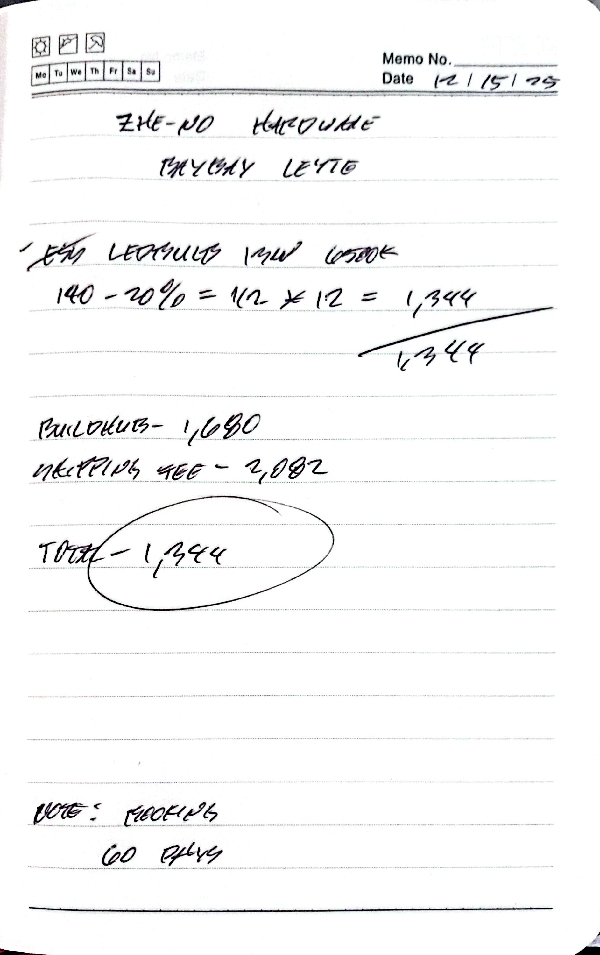 Mo Tu We Th Fr Sa Su
Memo No.
Date 12/15/25
ZHE-NO HARDWARE
BAYBAY LEYTE
LEDBULB 13W 6500K
140 - 20% = 112 x 12 = 1,344
1,344
BUILDHUB - 1,680
SHIPPING FEE - 2,082
TOTAL - 1,344
NOTE: BOOKING
60 DAYS